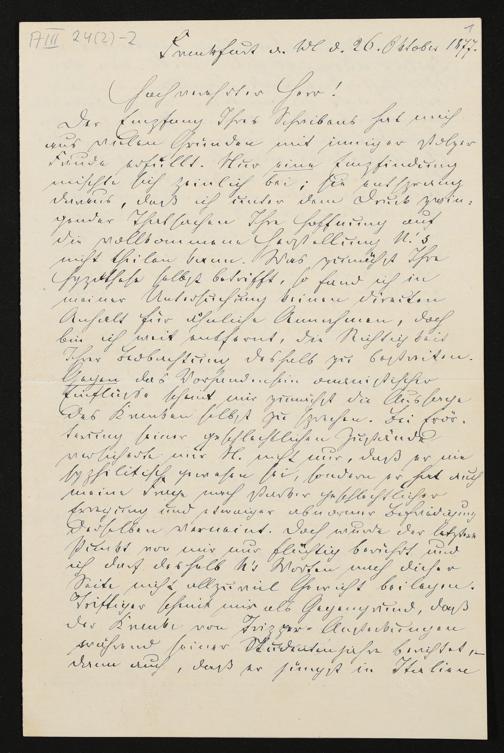 A III 24(2)-2
1
Frankfurt a. M. d. 26. Oktober 1877.
Hochverehrter Herr!
Der Empfang Ihres Schreibens hat mich
aus vielen Gründen mit inniger stolzer
Freude erfüllt. Nur eine Empfindung
mischte sich peinlich bei; sie entsprang
daraus, daß ich unter dem Druck zwin-
gender Thatsachen Ihre Hoffnung auf
die vollkommene Herstellung N's
nicht theilen kann. Was zunächst Ihre
Hypothese selbst betrifft, so fand ich in
meiner Untersuchung keinen direkten
Anhalt für ähnliche Annahmen, doch
bin ich weit entfernt, die Richtigkeit
Ihrer Beobachtung deshalb zu bestreiten.
Gegen das Vorhandensein onanistischer
Einflüsse scheint mir zunächst die Aussage
des Kranken selbst zu sprechen. Bei Erör-
terung seiner geschlechtlichen Zustände
versicherte mir N. nicht nur, daß er nie
syphilitisch gewesen sei, sondern er hat auch
meine Frage nach starker geschlechtlicher
Erregung und etwaiger abnormer Befriedigung
derselben verneint. Doch wurde der letztere
Punkt von mir nur flüchtig berührt und
ich darf deshalb N's Worten nach dieser
Seite nicht allzuviel Gewicht beilegen.
Triftiger scheint mir als Gegengrund, daß
der Kranke von Tripper-Ansteckungen
während seiner Studentenjahre berichtet, –
dann auch, daß er jüngst in Italien